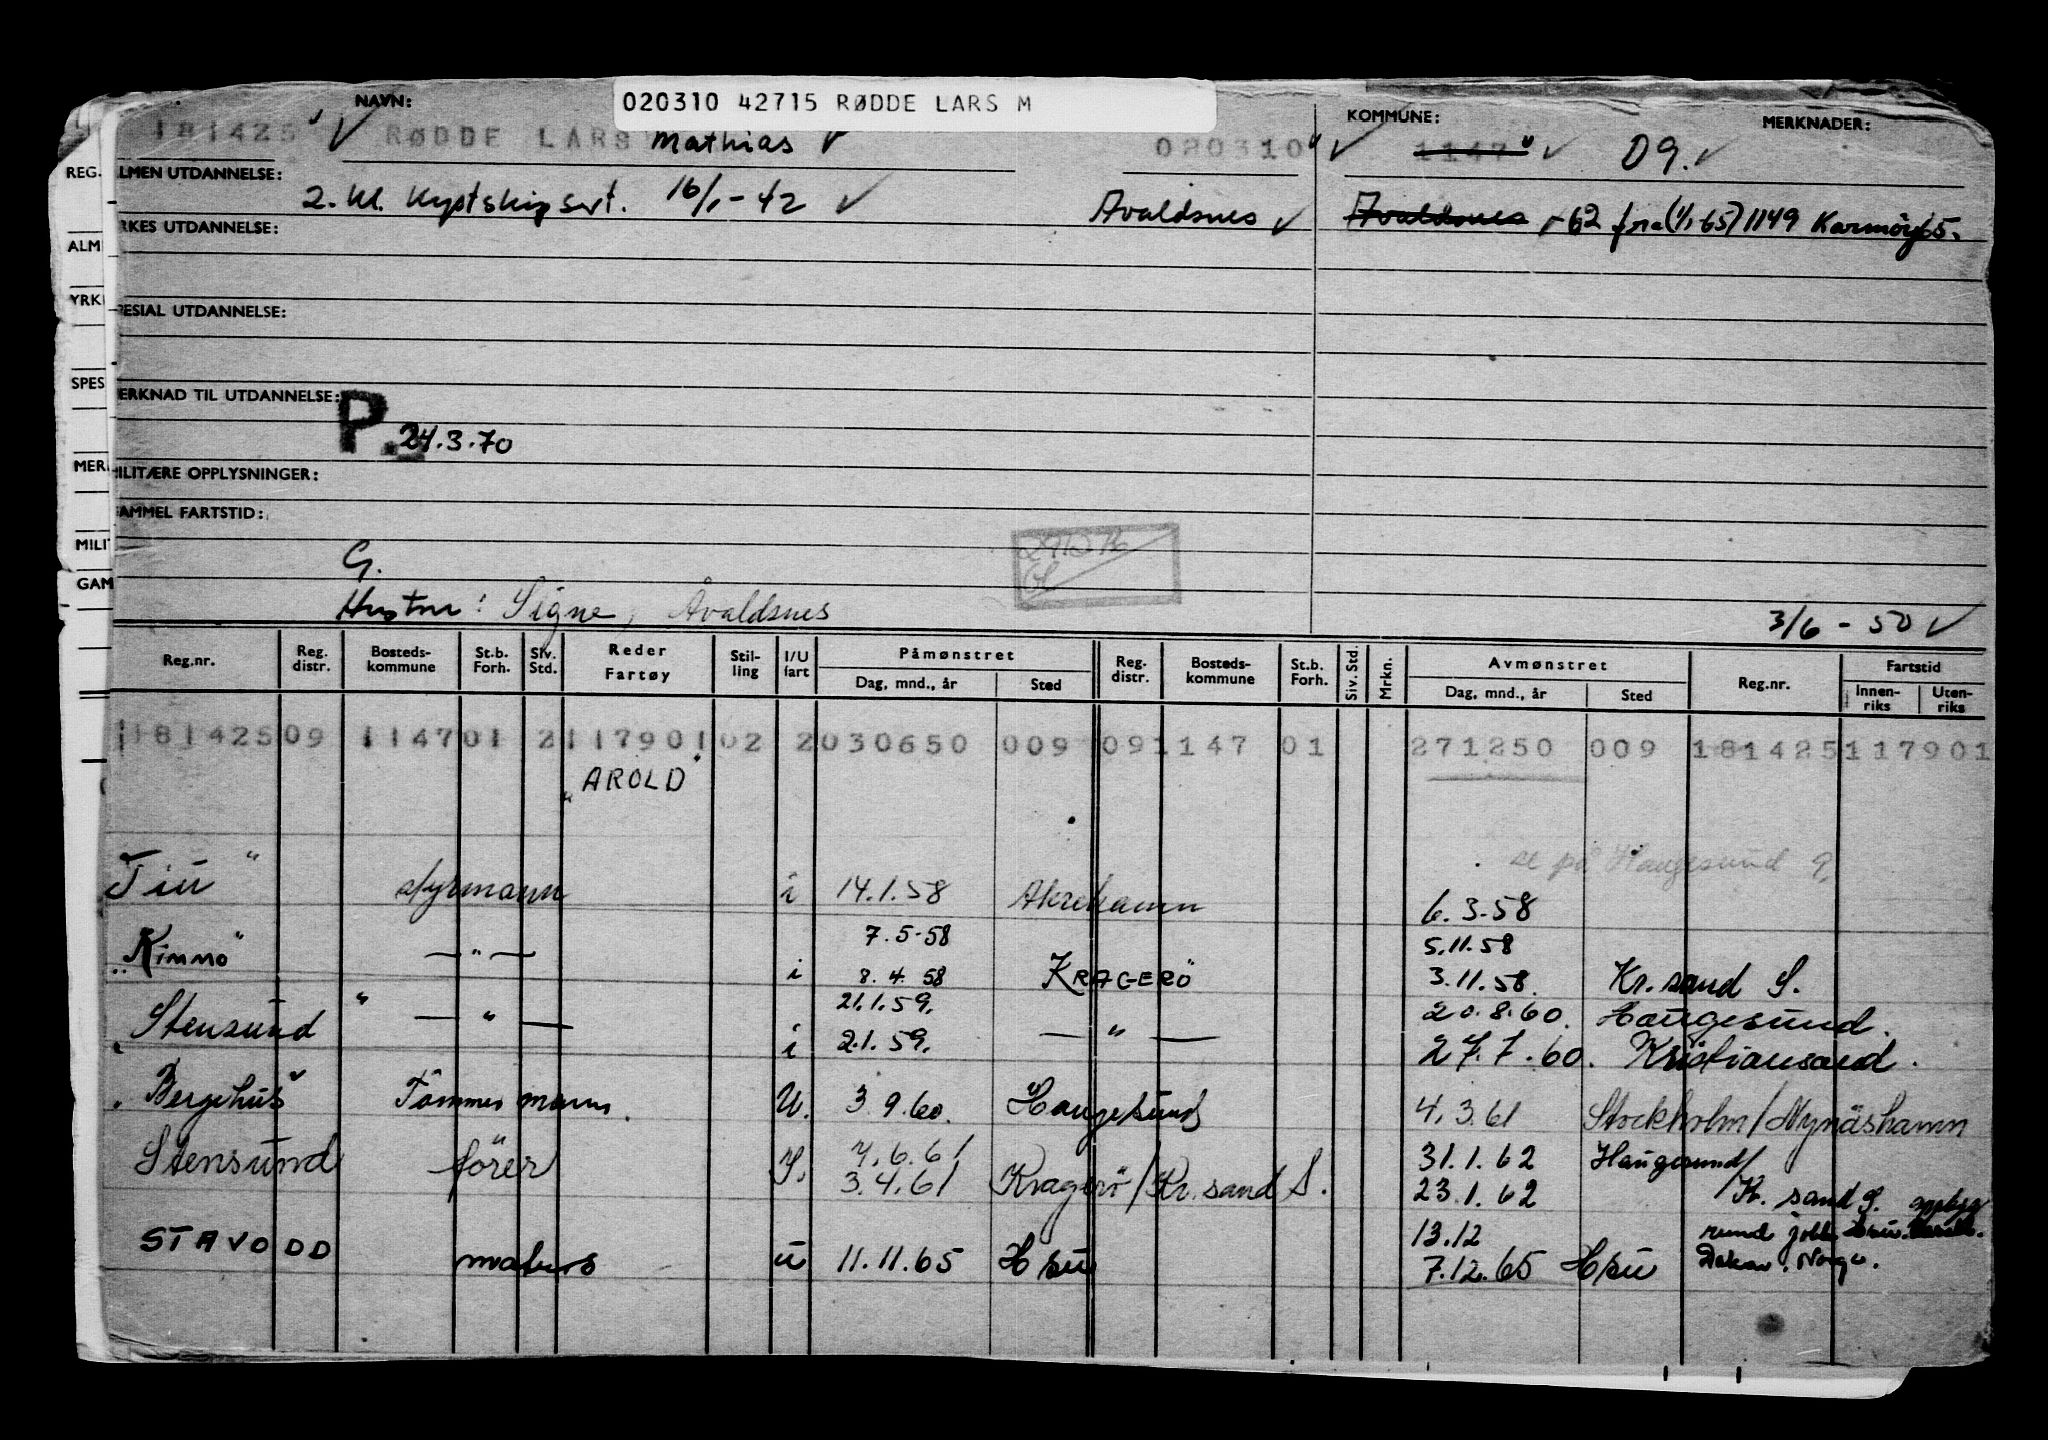 020310 42715 RØDDE LARS M
NAVN: KOMMUNE: MERKNADER:
181425 RØDDE LARS Mathias 020310 1147 09.
REG. LMEN UTDANNELSE:
2. kl. Kystskipsert. 16/1-42 Avaldsnes Avaldsnes -62 fra (1/1-65) 1149 Karmöy 65.
ALM RKES UTDANNELSE:
YRK ESIAL UTDANNELSE:
SPES ERKNAD TIL UTDANNELSE:
P. 24.3.70
MER ILITÆRE OPPLYSNINGER:
AMMEL FARTSTID:
MILIT G.
GAM
Hustru: Signe, Avaldsnes 3/6 - 50
Reg.nr. Reg. distr. Bosteds-kommune St.b. Forh. Siv. Std. Reder Fartøy Stil-ling I/U fart Påmønstret Dag, mnd., år Sted Reg. distr. Bosteds-kommune St.b. Forh. Siv. Std. Mrkn. Avmønstret Dag, mnd., år Sted Reg.nr. Fartstid Innen-riks Uten-riks
181425 09 1147 01 2 117901 02 2 030650 009 09 1147 01 271250 009 181425 117901
"AROLD"
se på Haugesund
Tiu" styrmann i 14.1.58 Akrehamn 6.3.58
7.5.58 5.11.58
"Kimmo" — " — i 8.4.58 KRAGERÖ 3.11.58. Kr.sand S.
21.1.59. 20.8.60. Haugesund.
Stensund" — " — i 2.1.59. — " — 27.7.60. Kristiansand.
"Bergehus" Tömmermann. U. 3.9.60. Haugesund 4.3.61 Stockholm/Nynäshamn
7.6.61 31.1.62 Haugesund/
Stensund förer 3.4.61 Kragerö/Kr.sand S. 23.1.62 Kr.sand S.
13.12
STAVODD matros u 11.11.65 Hsu 7.12.65 Hsu